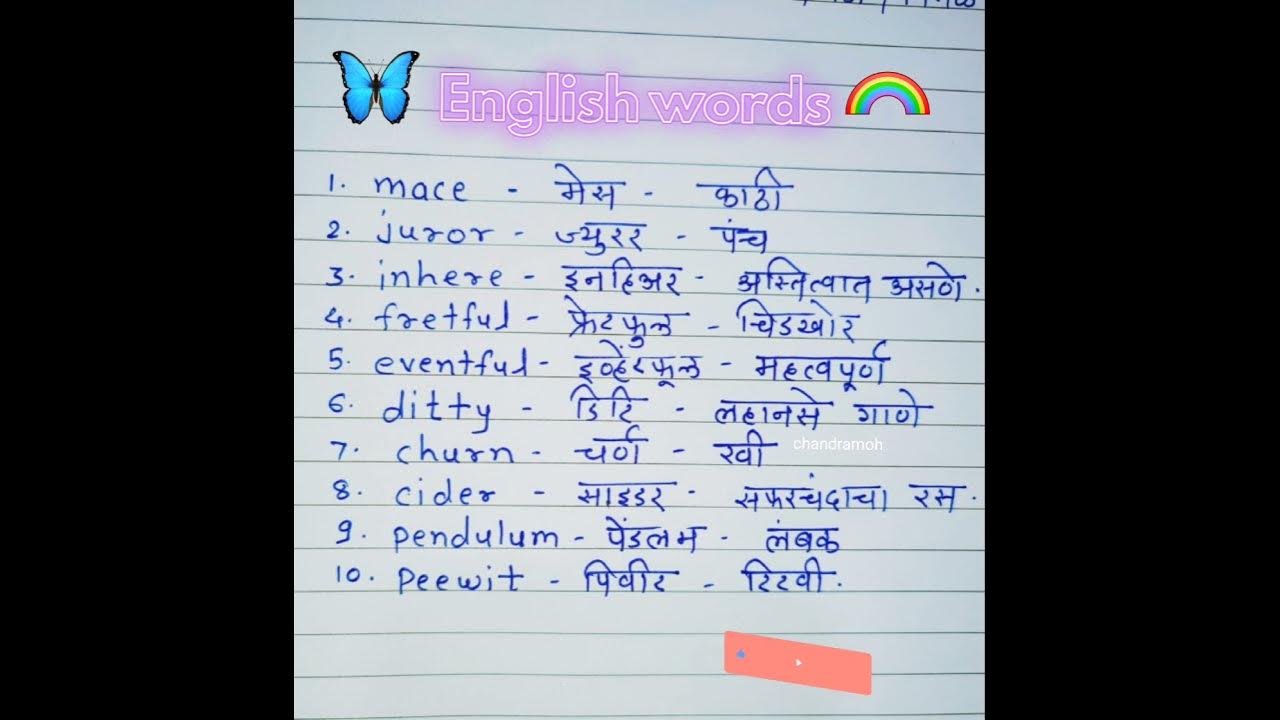 English words
1. mace - मेस - काठी
2. juror - ज्युरर - पंच
3. inhere - इनहिअर - अस्तित्वात असणे.
4. fretful - फ्रेटफुल - चिडखोर
5. eventful - इव्हेंटफूल - महत्वपूर्ण
6. ditty - डिटि - लहानसे गाणे
7. churn - चर्ण - रवी
chandramoh
8. cider - साइडर - सफरचंदाचा रस.
9. pendulum - पेंडलम - लंबक
10. peewit - पिवीट - टिटवी.